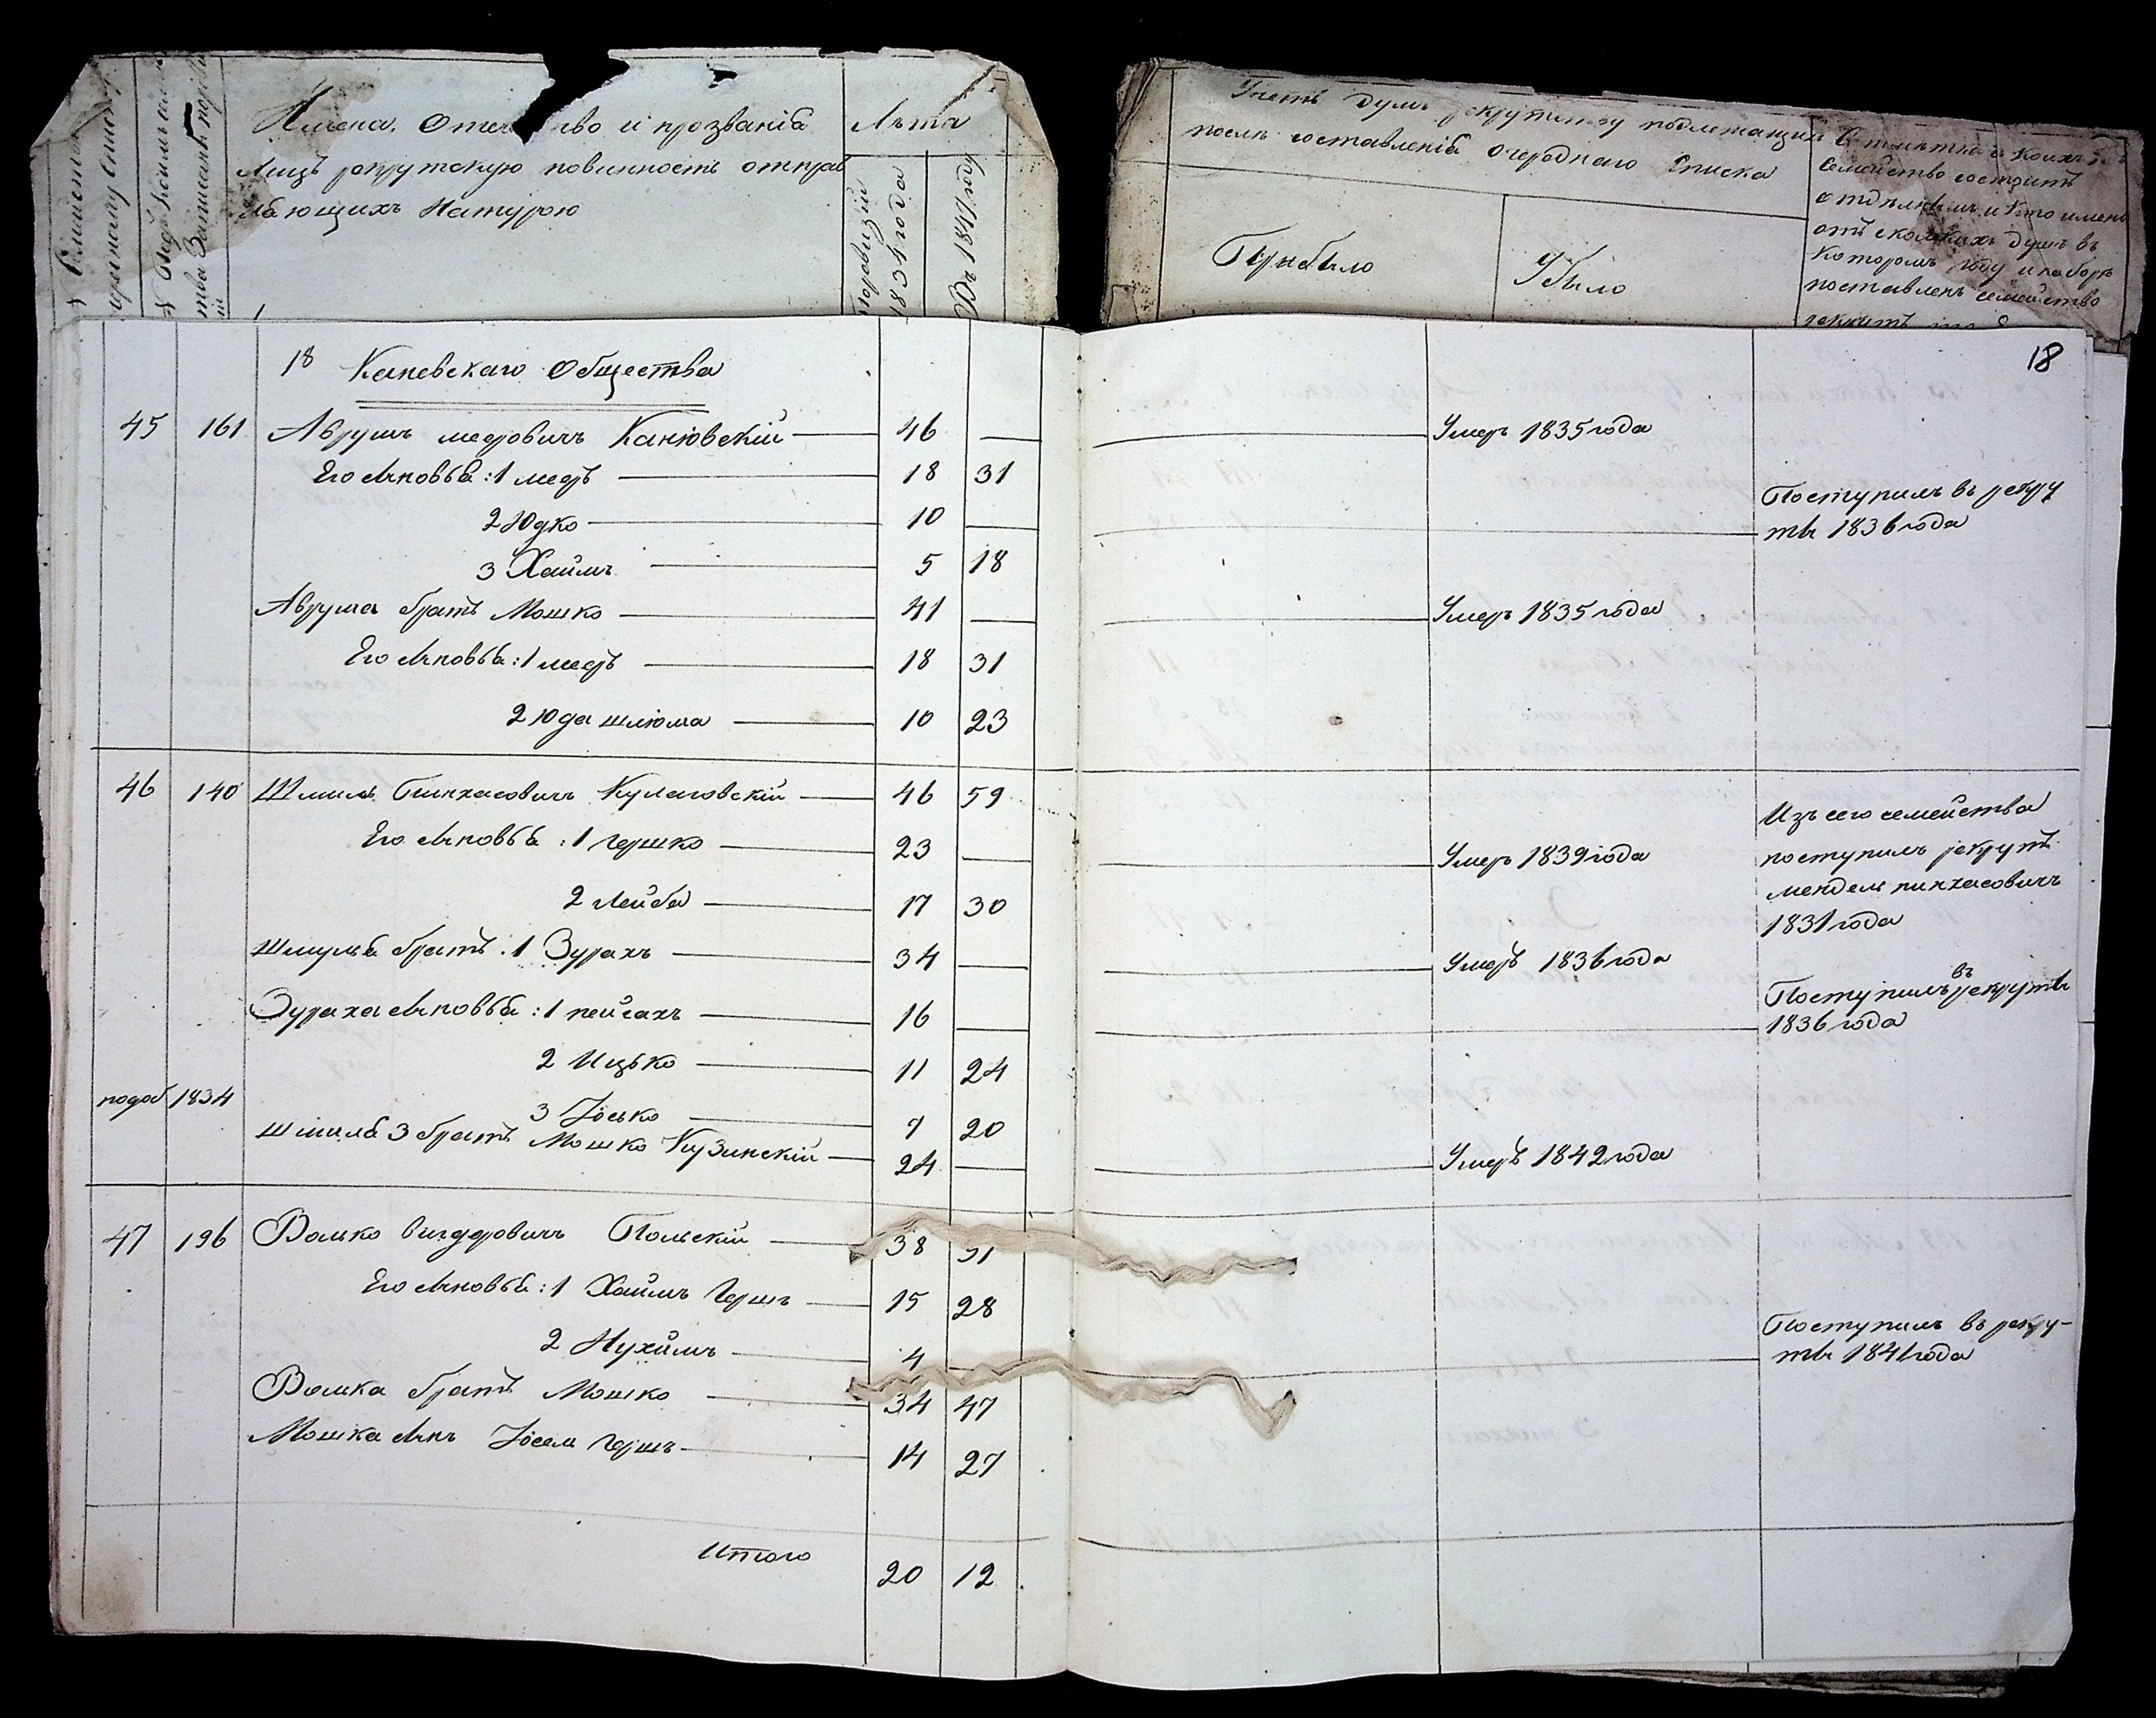 Имена, Отечество и прозванія Лѣта
Лицъ рекрутскую повинность отправ
ляющихъ Натурою
1834 года
Въ 1847 году
душъ рекрутству подлежащихъ
послѣ составленія Очереднаго Списка
Прибыло Убыло
Семейство состоитъ
душъ въ
Которомъ году и наборѣ
поставленъ семейство
18 Каневскаго Общества 18
45 161 Аврумъ мееровичъ Канювскій 46 — Умеръ 1835 года
Его сыновья: 1 мееръ 18 31
2 Юдко 10 — Поступилъ въ рекру
ты 1836 года
3 Хаимъ 5 18
Аврума братъ Мошко 41 — Умеръ 1835 года
Его сыновья: 1 мееръ 18 31
2 Юда шлюма 10 23
46 140 Шмиль Пинхасовичъ Кулаговскій 46 59
Его сыновья: 1 гершко 23 — Умеръ 1839 года
2 Лейба 17 30
Изъ сего семейства
поступилъ рекрутъ
мендель пинхасовичъ
1831 года
Шмуля братъ. 1 Зурахъ 34 — Умеръ 1836 года
Зураха сыновья: 1 пейсахъ 16 — Поступилъ въ рекруты
1836 года
2 Ицько 11 24
подоб 1834
3 Іосько 7 20
Шмиля 3 братъ Мошко Кузинскій 24 — Умеръ 1842 года
47 196 Волько вигдоровичъ Польскій 38 51
Его сыновья: 1 Хаимъ Гершъ 15 28
2 Нухимъ 4 — Поступилъ въ рекру-
ты 1841 года
Волька братъ Мошко 34 47
Мошка сынъ Іосель Гершъ 14 27
Итого 20 12